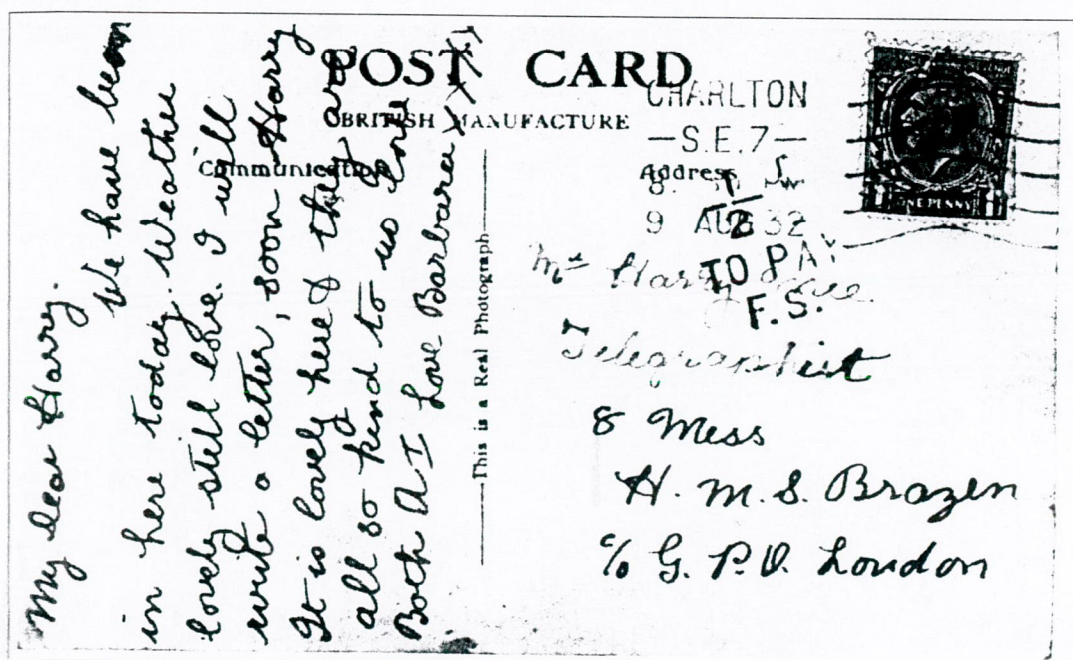 POST CARD
BRITISH MANUFACTURE
Communication
Address
This is a Real Photograph
CHARLTON
S.E.7
9 AUG 32
1/2
TO PAY
F.S.
ONE PENNY
My dear Harry.
We have been
in here today. Weather
lovely still love. I will
write a letter, soon Harry
It is lovely here & they are
all so kind to us love
Both A I Love Barbara XXX
Mr Harry
Telegraphist
8 Mess
H. M. S. Brazen
c/o G. P. O. London